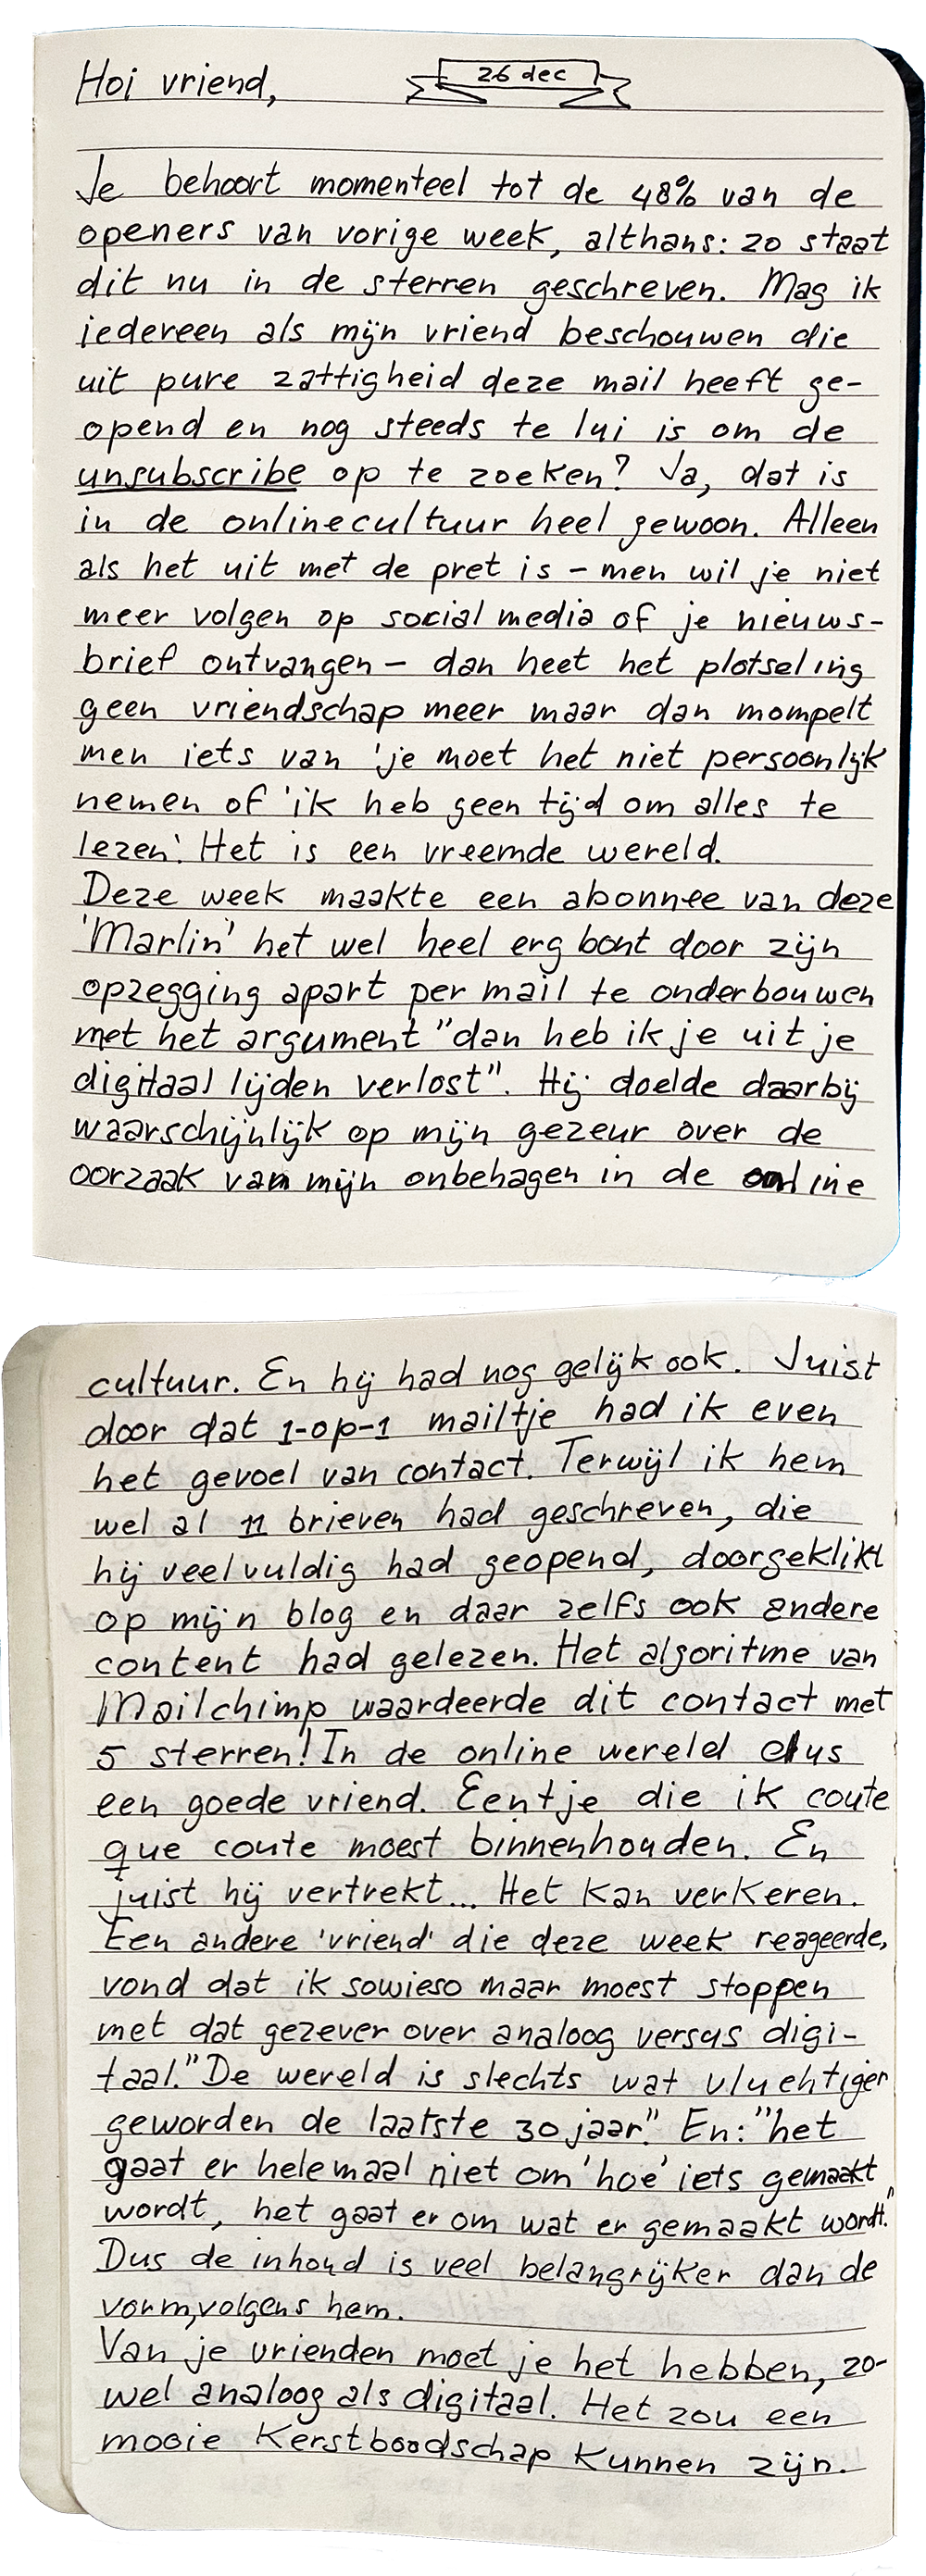 Hoi vriend,
26 dec
Je behoort momenteel tot de 48% van de
openers van vorige week, althans: zo staat
dit nu in de sterren geschreven. Mag ik
iedereen als mijn vriend beschouwen die
uit pure zattigheid deze mail heeft ge-
opend en nog steeds te lui is om de
unsubscribe op te zoeken? Ja, dat is
in de onlinecultuur heel gewoon. Alleen
als het uit met de pret is – men wil je niet
meer volgen op social media of je nieuws-
brief ontvangen – dan heet het plotseling
geen vriendschap meer maar dan mompelt
men iets van 'je moet het niet persoonlijk
nemen of 'ik heb geen tijd om alles te
lezen'. Het is een vreemde wereld.
Deze week maakte een abonnee van deze
'Marlin' het wel heel erg bont door zijn
opzegging apart per mail te onderbouwen
met het argument "dan heb ik je uit je
digitaal lijden verlost". Hij doelde daarbij
waarschijnlijk op mijn gezeur over de
oorzaak van mijn onbehagen in de online
cultuur. En hij had nog gelijk ook. Juist
door dat 1-op-1 mailtje had ik even
het gevoel van contact. Terwijl ik hem
wel al 11 brieven had geschreven, die
hij veelvuldig had geopend, doorgeklikt
op mijn blog en daar zelfs ook andere
content had gelezen. Het algoritme van
Mailchimp waardeerde dit contact met
5 sterren! In de online wereld dus
een goede vriend. Eentje die ik coute
que coute moest binnenhouden. En
juist hij vertrekt... Het kan verkeren.
Een andere 'vriend' die deze week reageerde,
vond dat ik sowieso maar moest stoppen
met dat gezever over analoog versus digi-
taal. "De wereld is slechts wat vluchtiger
geworden de laatste 30 jaar." En: "het
gaat er helemaal niet om 'hoe' iets gemaakt
wordt, het gaat er om wat er gemaakt wordt."
Dus de inhoud is veel belangrijker dan de
vorm, volgens hem.
Van je vrienden moet je het hebben, zo-
wel analoog als digitaal. Het zou een
mooie Kerstboodschap kunnen zijn.